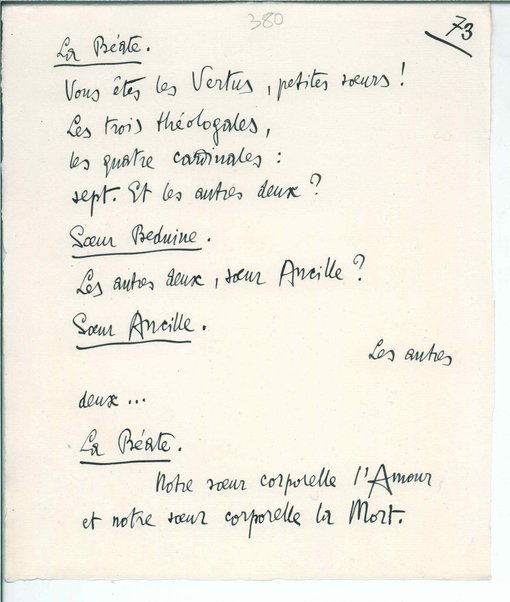 380
73
La Béate.
Vous êtes les Vertus, petites sœurs !
Les trois théologales,
les quatre cardinales :
sept. Et les autres deux ?
Sœur Beduine.
Les autres deux, sœur Ancille ?
Sœur Ancille.
Les autres
deux...
La Béate.
Notre sœur corporelle l'Amour
et notre sœur corporelle la Mort.